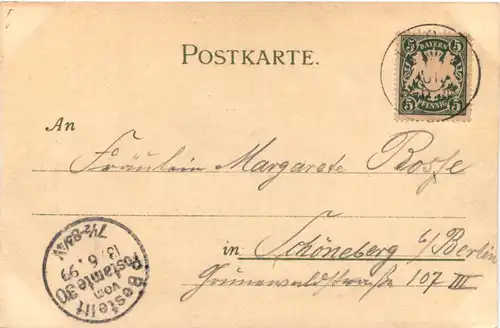 POSTKARTE.
5 BAYERN 5
5 PFENNIG 5
An
Fräulein Margarete Bosse
in Schöneberg b/Berlin
Grunewaldstraße 107 III
Bestellt
vom
Postamte 30
13.6.99
7½-8¼V